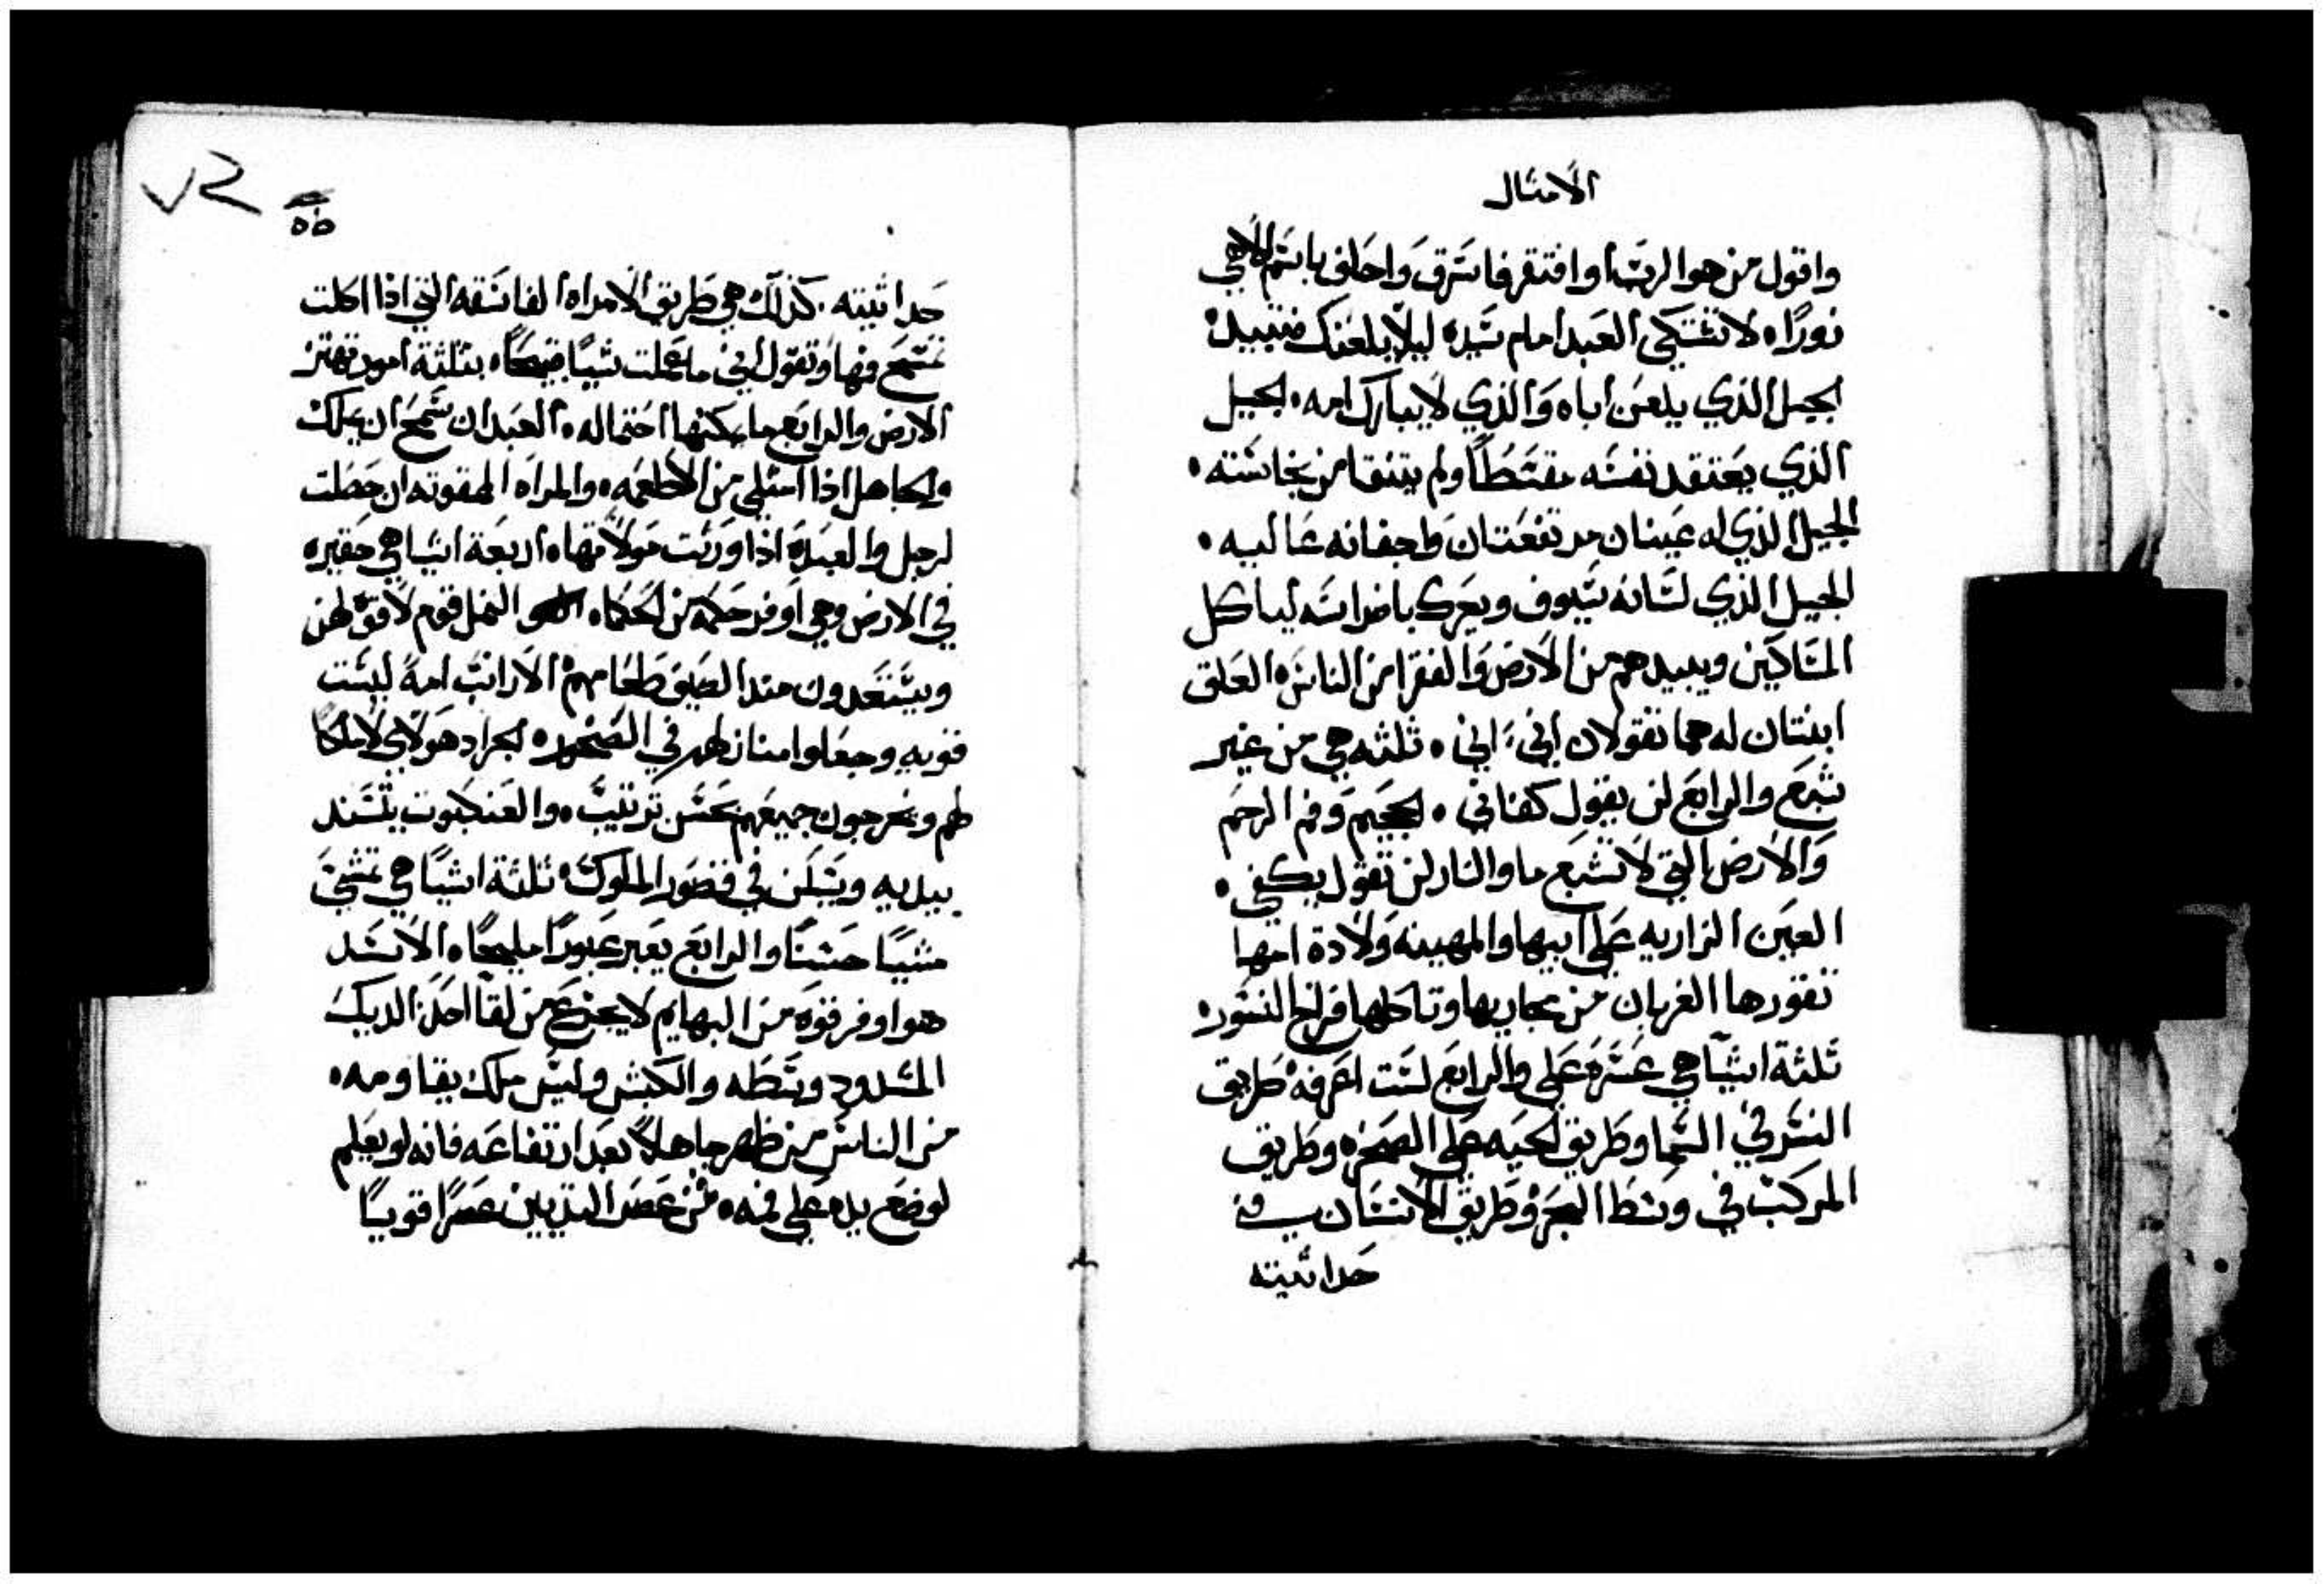 الامثال
واقول من هو الرب او افتقر فاسرق واحلف باسم الاهي
زورًا. لا تشتكي العبد امام سيده ليلا يلعنك فتبيد.
الجيل الذي يلعن اباه والذي لا يبارك امه. الجيل
الذي يعتقد نفسه مقسطًا ولم يتنقا من نجاسته.
الجيل الذي له عينان مرتفعتان واجفانه عاليه.
الجيل الذي لسانه سيوف ويعرك باضراسه لياكل
المساكين ويبيدهم من الارض والفقرا من الناس. العلق
ابنتان له هما تقولان اني، اني. ثلثه هي من غير
شبع والرابع لن يقول كفاني. الجحيم وفم الرحم
والارض التي لا تشبع ما والنار لن تقول يكفي.
العين الزاريه على ابيها والمهينه ولادة امها
تقورها الغربان من مجاريها وتاكلها فراخ النسور.
ثلثة اشيا هي عسرة علي والرابع لست اعرفه. طريق
النسر في السما وطريق الحيه على الصخره وطريق
المركب في وسط البحر وطريق الانسان في
حداثيته
٧٢
٥٥
حداثيته. كذلك هي طريق الامراه الفاسقه التي اذا اكلت
تمسح فمها وتقول اني ما عملت شيًا قبيحًا. بثلثة امور تهتز
الارض والرابع ما يمكنها احتماله. العبد ان سمح ان يملك
والجاهل اذا امتلى من الاطعمه. والمراه الممقوته ان حصلت
لرجل والعبدة اذا ورثت مولاتها. اربعة اشيا هي حقيره
في الارض وهي اوفر حكمة من الحكماء. النمل قوم لا قوة لهن
ويستعدون منذ الصيف طعامهم. الارانب امة ليست
قويه وجعلوا منازلهم في الصخور. الجراد هولاي لا ملكًا
لهم ويخرجون جميعهم بحسن ترتيب. والعنكبوت يستند
بيديه ويسكن في قصور الملوك. ثلثة اشيا هي تمشي
مشيًا حسنًا والرابع يعبر عبورًا مليحًا. الاسد
هو اوفر قوه من البهايم لا يجزع من لقا احد. الديك
المشدود وسطه والكبش وليس ملك يقاومه.
من الناس من ظهر جاهلًا بعد ارتفاعه فانه لو يعلم
لوضع يده على فمه. من عصر الثديين عصرًا قويًا